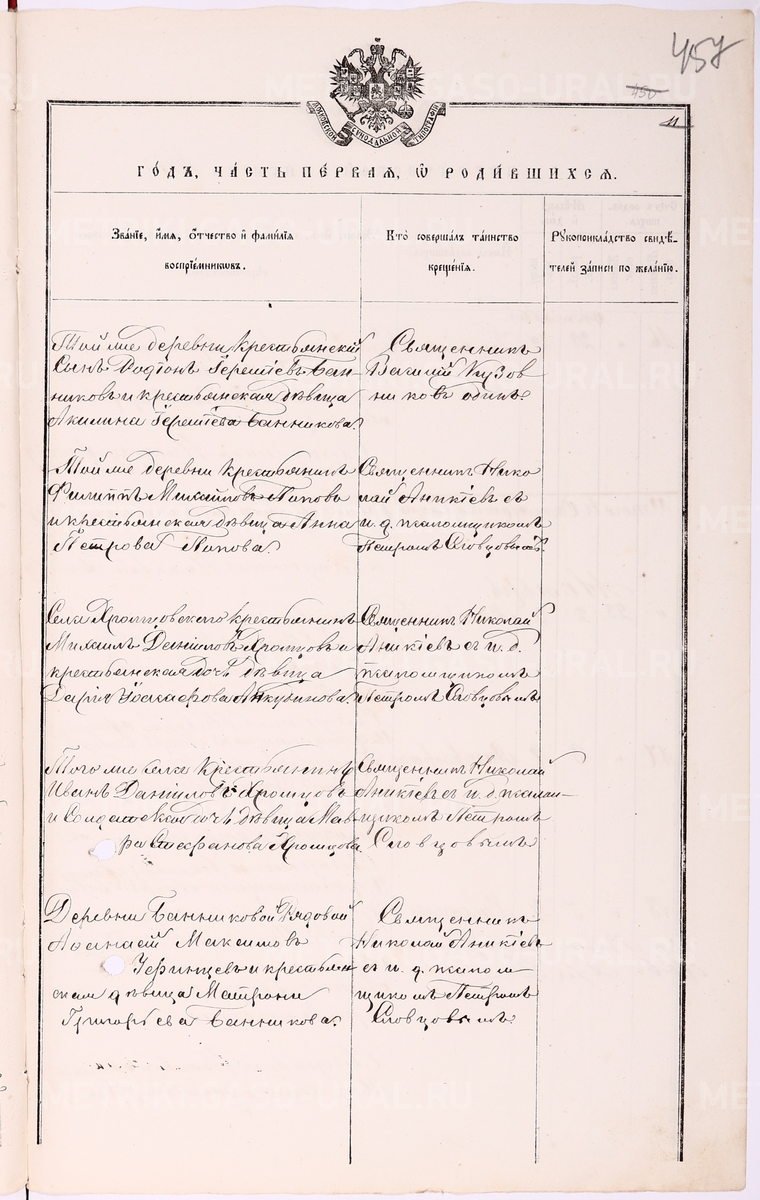 457
450
11
МОСКОВСКОЙ СѴНОДАЛЬНОЙ ТИПОГРАФІИ
ГО́ДЪ, ЧА́СТЬ ПЕ́РВАЯ, Ѽ РОДИ́ВШИХСЯ.
Зва́нїе, и҆́мя, ѻ҆́тчество и҆ фами́лїя
воспрїе́мникѡвъ.
Кто̀ соверша́лъ та́инство
креще́нїя.
Рꙋкоприкла́дство свидѣ́-
телей за́писи по жела́нїю.
Той же деревни крестьянскій
сынъ Родіонъ Бан-
никовъ и крестьянская дѣвица
Акилина Банникова.
Священникъ
Василій Кузов
никовъ одинъ.
Той же деревни крестьянинъ
Филиппъ Михайловъ Поповъ
и крестьянская дѣвица Анна
Петрова Попова.
Священникъ Нико
лай Аникіевъ съ
и. д. псаломщикомъ
Петромъ Словцовымъ.
Села Хромцовскаго крестьянинъ
Михаилъ Даніиловъ Хромцовъ и
крестьянская дочь дѣвица
Дарья
Священникъ Николай
Аникіевъ съ и. д.
псаломщикомъ
Петромъ Словцовымъ
Того же села крестьянинъ
Иванъ Даніиловъ Хромцовъ
и Солдатская дочь дѣвица Мав
ра Стефанова Хромцова.
Священникъ Николай
Аникіевъ съ и. д. псалом-
щикомъ Петромъ
Словцовымъ
Деревни Банниковой Рядовой
Аѳанасій Максимовъ
и крестьян
ская дѣвица Матрона
Григорьева Банникова.
Священникъ
Николай Аникіевъ
съ и. д. псалом
щикомъ Петромъ
Словцовымъ